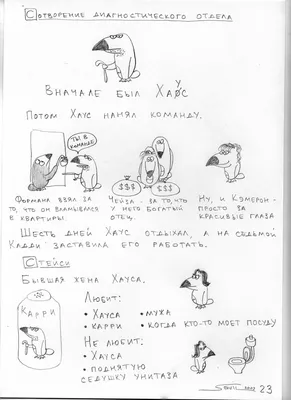 СОТВОРЕНИЕ ДИАГНОСТИЧЕСКОГО ОТДЕЛА
ВНАЧАЛЕ БЫЛ ХАУС
ПОТОМ ХАУС НАНЯЛ КОМАНДУ.
ТЫ В КОМАНДЕ
$$$ $$$
ФОРМАНА ВЗЯЛ ЗА ТО, ЧТО ОН ВЛАМЫВАЛСЯ В КВАРТИРЫ.
ЧЕЙЗА - ЗА ТО, ЧТО У НЕГО БОГАТЫЙ ОТЕЦ.
НУ, И КЭМЕРОН - ПРОСТО ЗА КРАСИВЫЕ ГЛАЗА
ШЕСТЬ ДНЕЙ ХАУС ОТДЫХАЛ, А НА СЕДЬМОЙ
КАДДИ ЗАСТАВИЛА ЕГО РАБОТАТЬ.
СТЕЙСИ
БЫВШАЯ ЖЕНА ХАУСА.
КАРРИ
ЛЮБИТ:
• ХАУСА • МУЖА
• КАРРИ • КОГДА КТО-ТО МОЕТ ПОСУДУ
НЕ ЛЮБИТ:
• ХАУСА
• ПОДНЯТУЮ
СЕДУШКУ УНИТАЗА
23